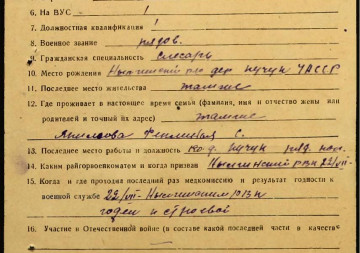 6. На ВУС 1
7. Должностная квалификация 1
8. Военное звание рядов.
9. Гражданская специальность Слесарь
10. Место рождения р-он дер Кучук ТАССР
11. Последнее место жительства там же
12. Где проживает в настоящее время семья (фамилия, имя и отчество жены или
родителей и точный их адрес) там же
С.
13. Последнее место работы и должность Кучук
14. Каким райгорвоенкоматом и когда призван РВК 22/VII-
15. Когда и где проходил последний раз медкомиссию и результат годности к
военной службе 22/VII- РВК
годен к строевой
16. Участие в Отечественной войне (в составе какой последней части и в качестве